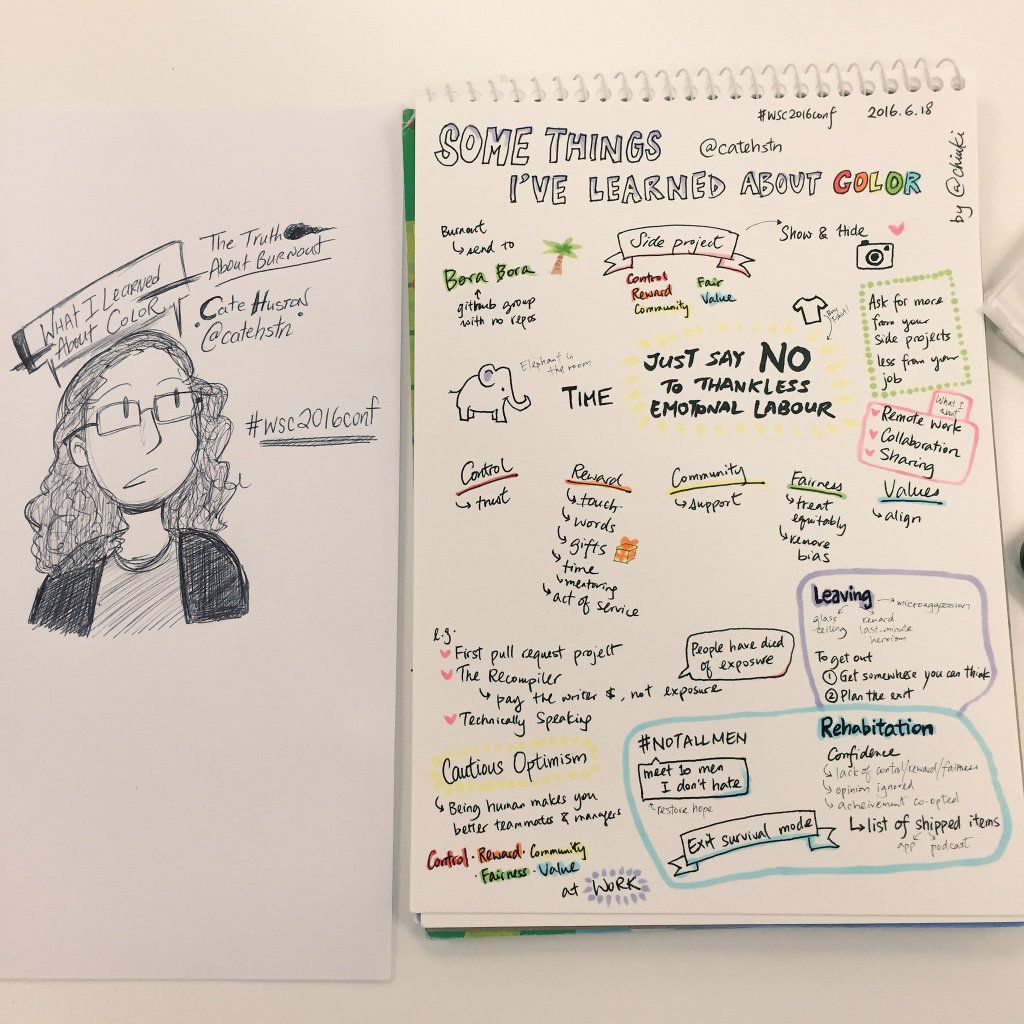 What I Learned
About Color
The Truth
About Burnout
Cate Huston
@catehstn
#wsc2016conf
#WSC2016conf
2016.6.18
by @chiuki
SOME THINGS
@catehstn
I'VE LEARNED ABOUT COLOR
Burnout
send to
Bora Bora
github group
with no repos
Side project
Control
Reward
Community
Fair
Value
Show & Hide
Ask for more
from your
side projects
less from your
job
Elephant in
the room
TIME
JUST SAY NO
TO THANKLESS
EMOTIONAL LABOUR
What I
want
Remote work
Collaboration
Sharing
Control
trust
Reward
touch
words
gifts
time
mentoring
act of service
Community
support
Fairness
treat
equitably
remove
bias
Values
align
e.g.
First pull request project
The Recompiler
pay the writer $, not exposure
Technically Speaking
People have died
of exposure
Leaving
microaggression
glass
ceiling
reward
last-minute
heroism
To get out
1 Get somewhere you can think
2 Plan the exit
Cautious Optimism
Being human makes you
better teammates & managers
Control · Reward · Community
· Fairness · Value
at WORK
#NOTALLMEN
meet 10 men
I don't hate
restore hope
Exit survival mode
Rehabitation
Confidence
lack of control/reward/fairness
opinion ignored
acheivement co-opted
list of shipped items
app
podcast